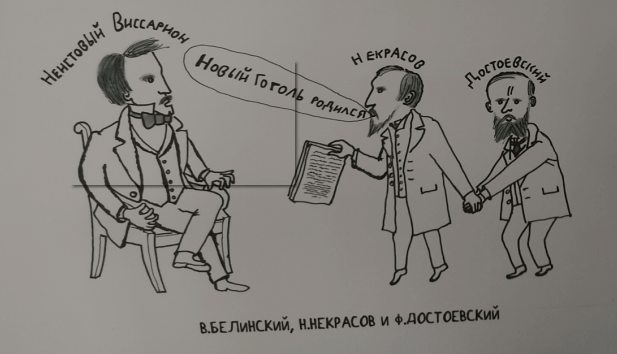 Неистовый Виссарион
Новый Гоголь родился
Некрасов
Достоевский
В.БЕЛИНСКИЙ, Н.НЕКРАСОВ И Ф.ДОСТОЕВСКИЙ